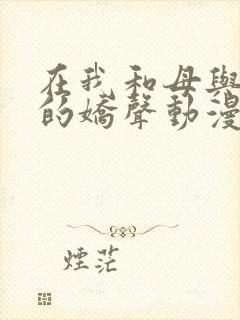 在我和母與
的嬌聲動漫
煙茫